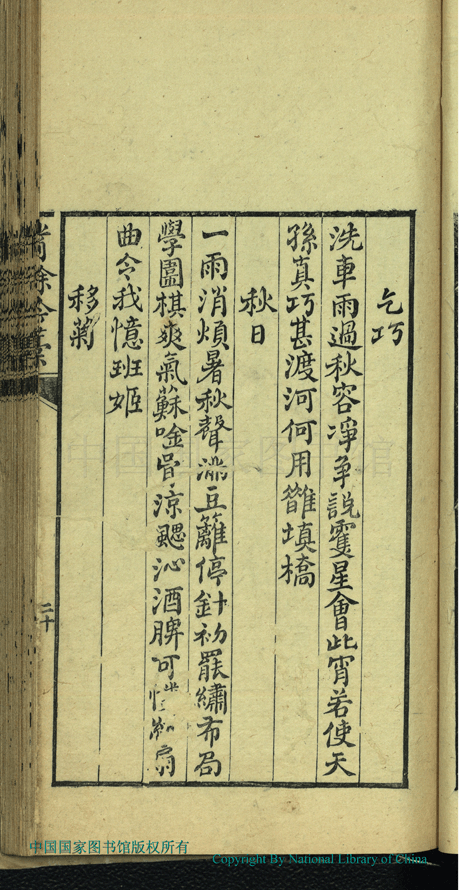 乞巧
洗車雨過秋容凈争說䨇星會此宵若使天
孫真巧甚渡河何用䧿填橋
秋日
一雨消煩暑秋聲滿豆籬停針初罷繡布局
學圍棋爽氣蘇唫骨涼颸沁酒脾可憐紈扇
曲令我憶班姬
移菊
二十
中国国家图书馆
中国国家图书馆版权所有
Copyright By National Library of China